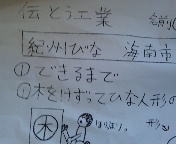 伝とう工業
紀州びな 海南市
①できるまで
①木をけずってひな人形の
木
ほりほり
形